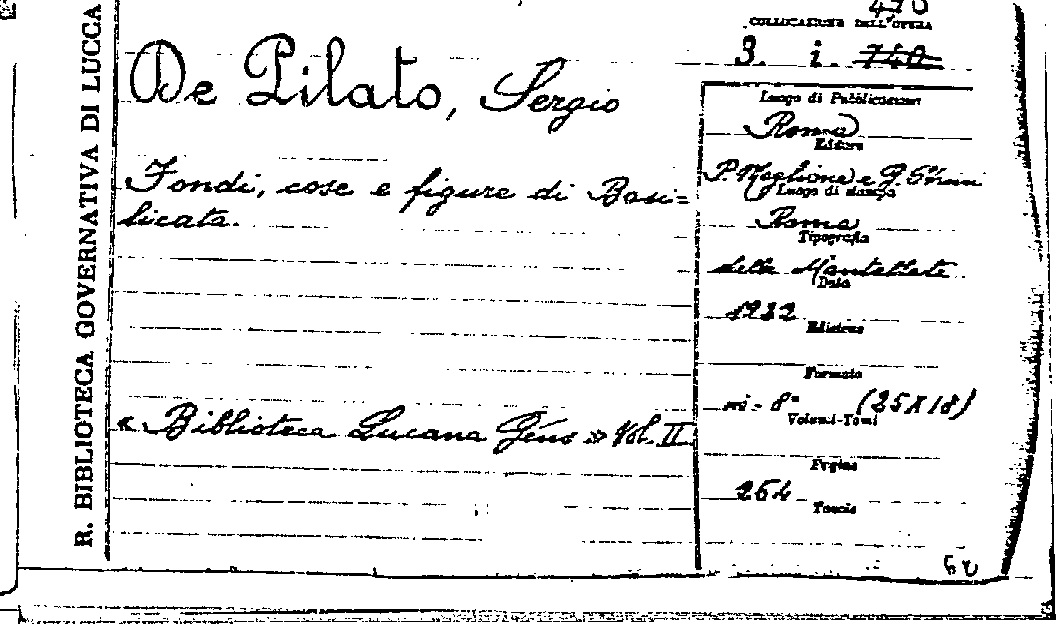 R. BIBLIOTECA GOVERNATIVA DI LUCCA
470
COLLOCAZIONE DELL'OPERA
3. i. 740
De Pilato, Sergio
Fondi, cose e figure di Basi=
licata.
« Biblioteca Lucana Géns » Vol. II.
Luogo di Pubblicazione
Roma
Editore
P. Maglione e G. Strini
Luogo di stampa
Roma
Tipografia
delle Mantellate
Data
1922
Edizione
Formato
in - 8° (25 X 18)
Volumi-Tomi
Pagine
254
Tavole